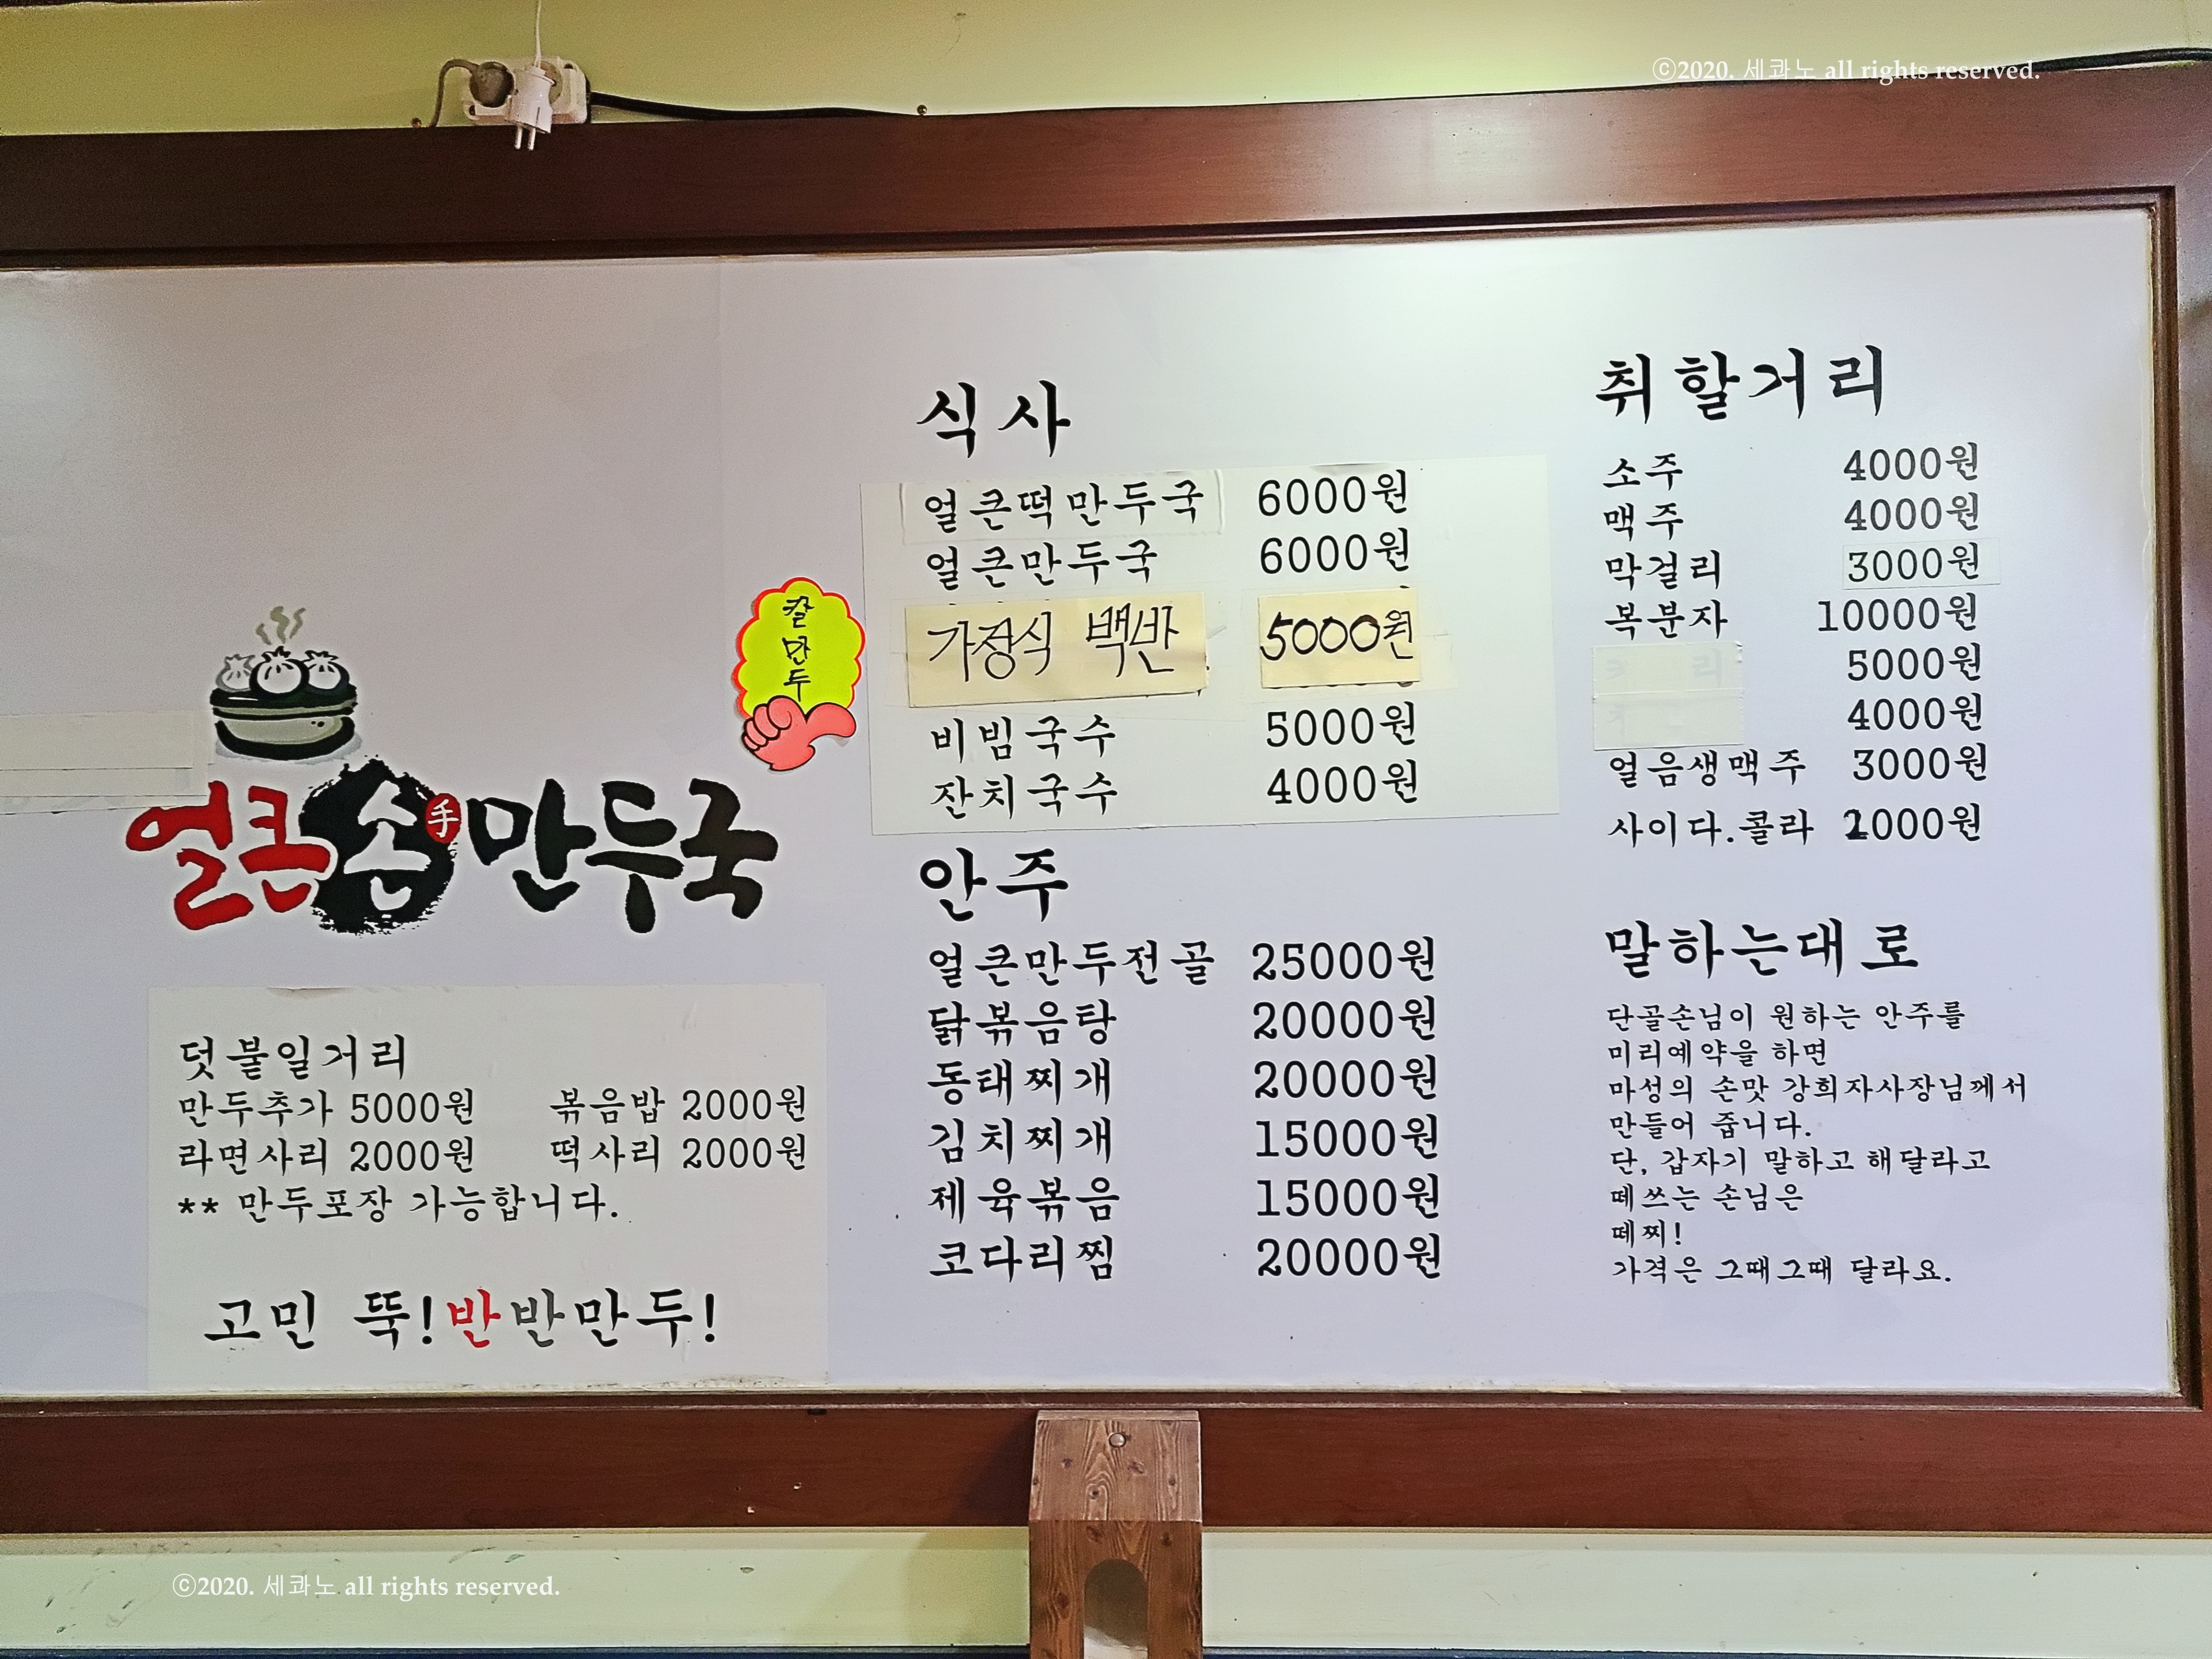 ⓒ2020. 세콰노 all rights reserved.
얼큰손手만두국
덧붙일거리
만두추가 5000원 볶음밥 2000원
라면사리 2000원 떡사리 2000원
** 만두포장 가능합니다.
고민 뚝!반반만두!
칼만두
식사
얼큰떡만두국 6000원
얼큰만두국 6000원
가정식 백반 5000원
비빔국수 5000원
잔치국수 4000원
안주
얼큰만두전골 25000원
닭볶음탕 20000원
동태찌개 20000원
김치찌개 15000원
제육볶음 15000원
코다리찜 20000원
취할거리
소주 4000원
맥주 4000원
막걸리 3000원
복분자 10000원
5000원
4000원
얼음생맥주 3000원
사이다.콜라 2000원
말하는대로
단골손님이 원하는 안주를
미리예약을 하면
마성의 손맛 강희자사장님께서
만들어 줍니다.
단, 갑자기 말하고 해달라고
떼쓰는 손님은
떼찌!
가격은 그때그때 달라요.
ⓒ2020. 세콰노 all rights reserved.